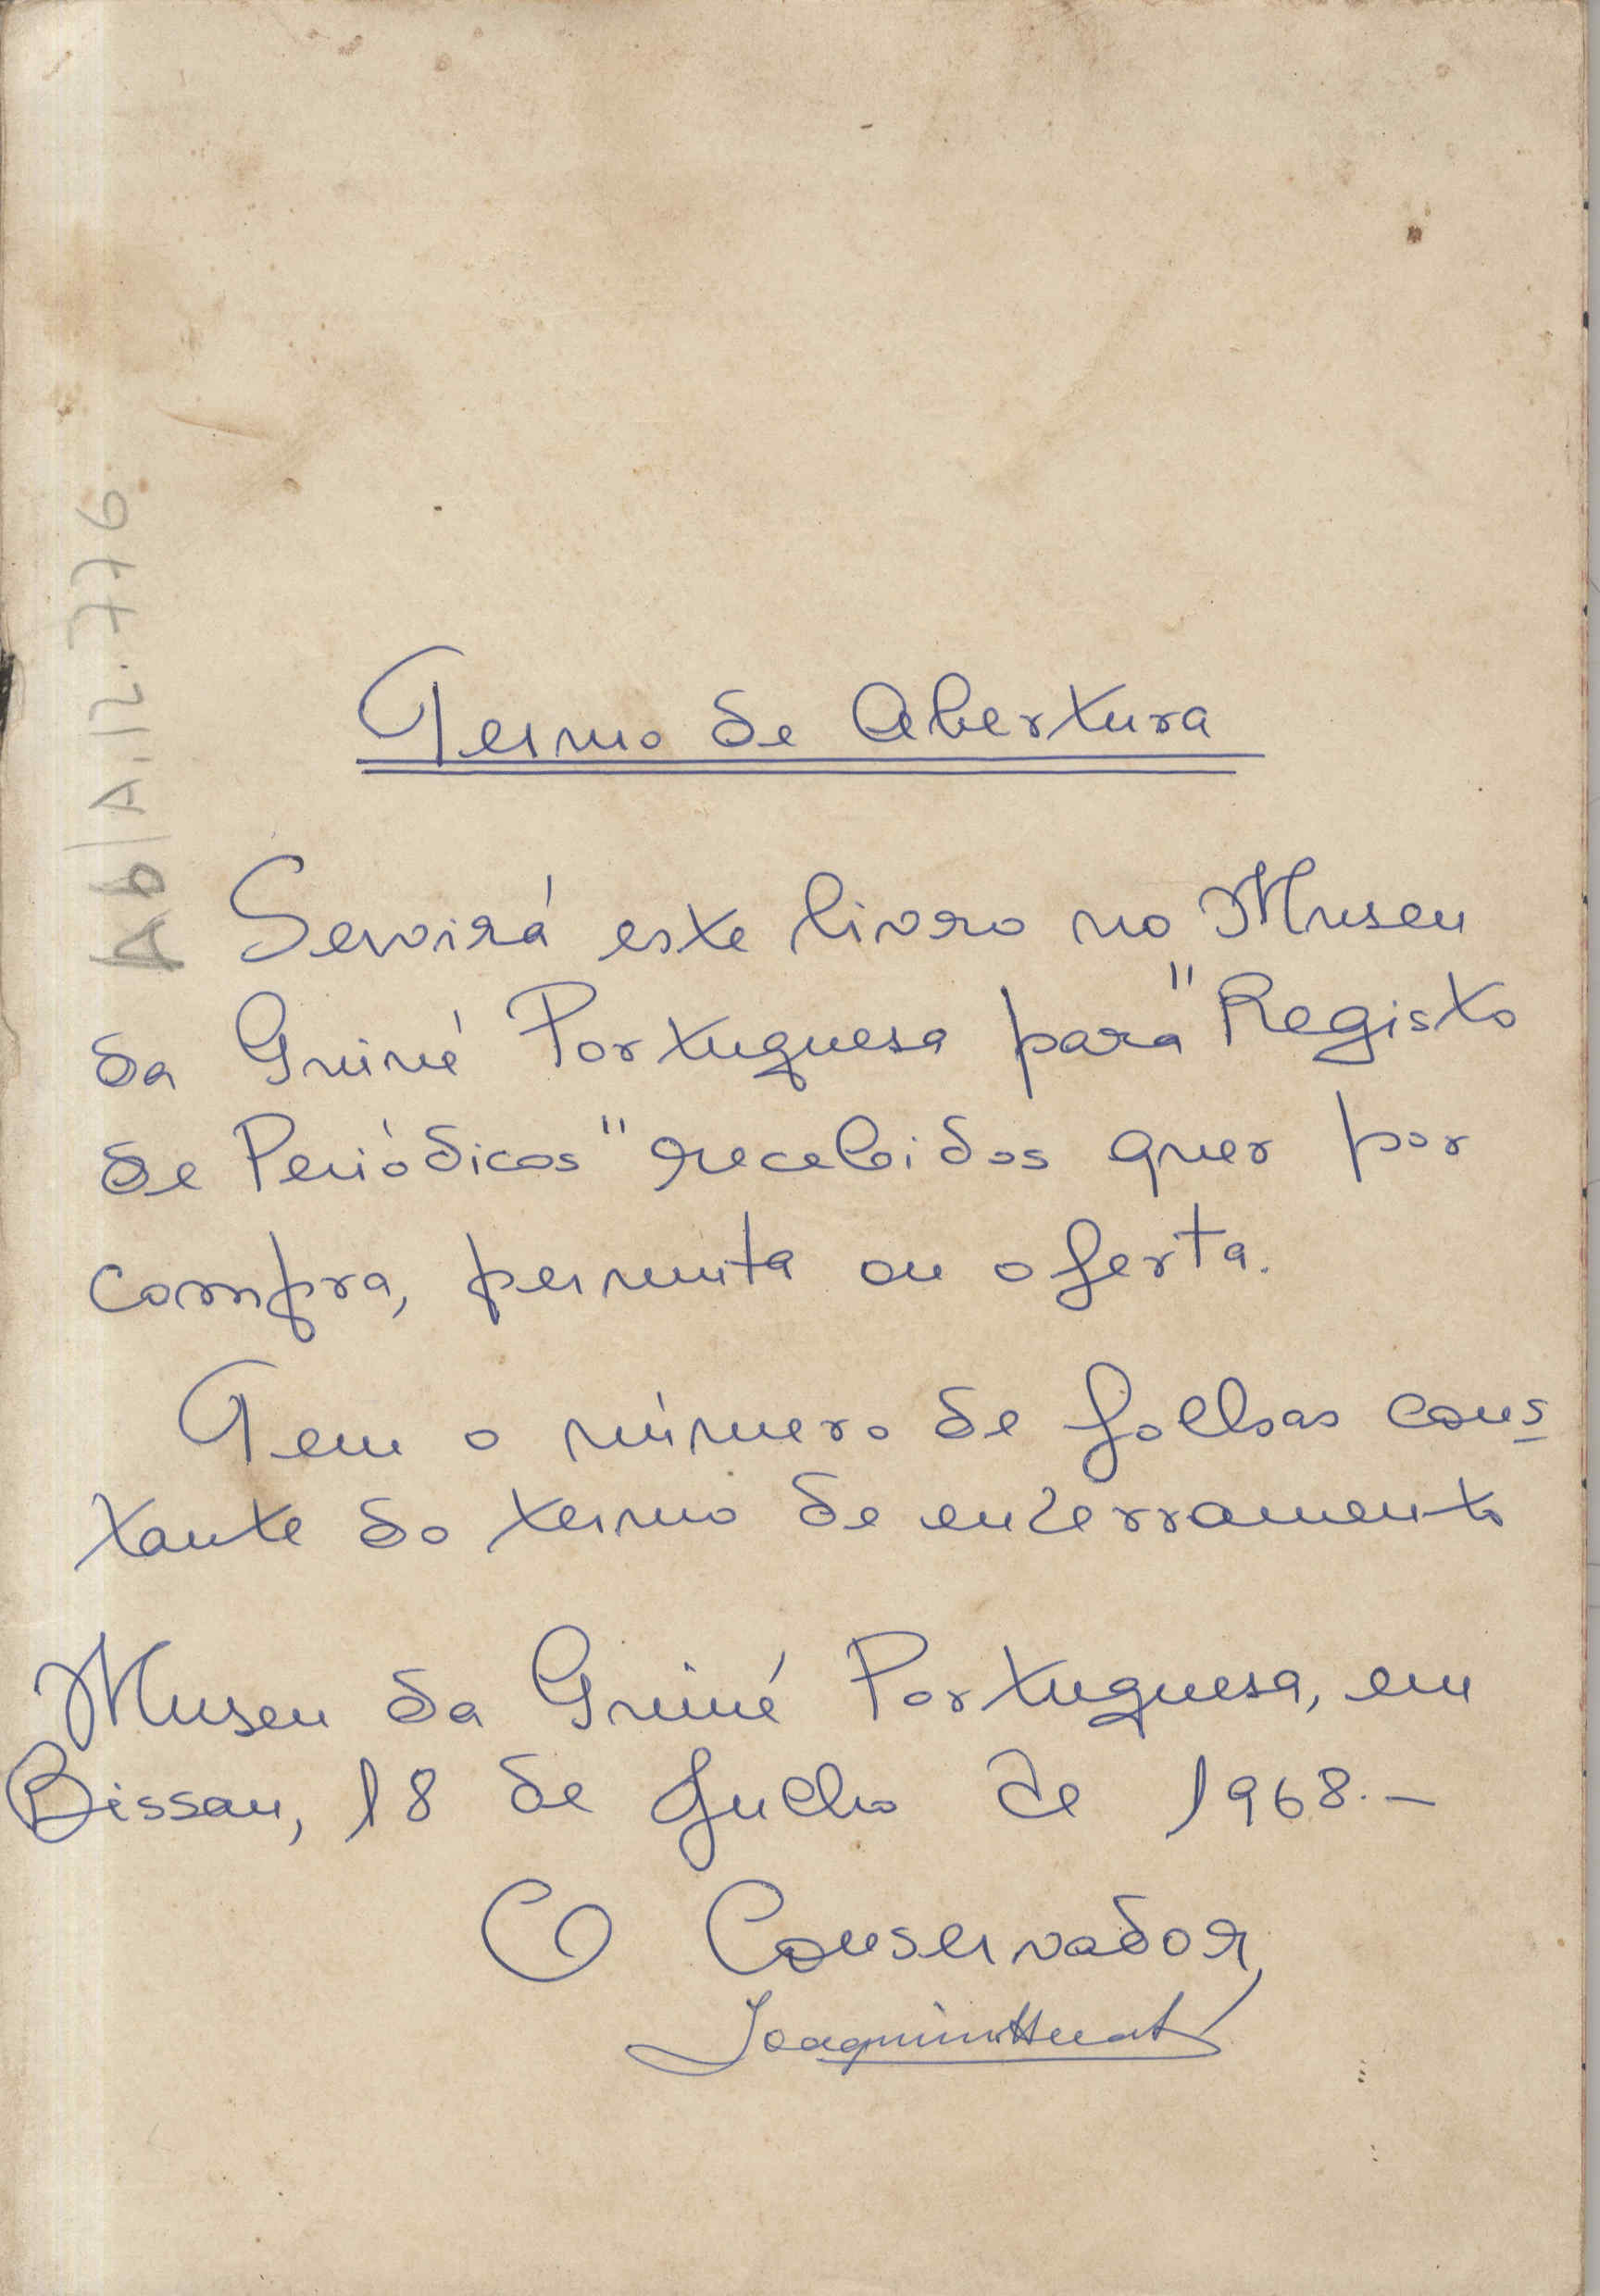 Termo de Abertura
Servirá este livro no Museu
da Guiné Portuguesa para "Registo
de Periódicos" recebidos quer por
compra, permuta ou oferta.
Tem o número de folhas cons
tante do termo de encerramento
Museu da Guiné Portuguesa, em
Bissau, 18 de Julho de 1968.—
O Conservador,
Joaquim
Ab/A.12.776